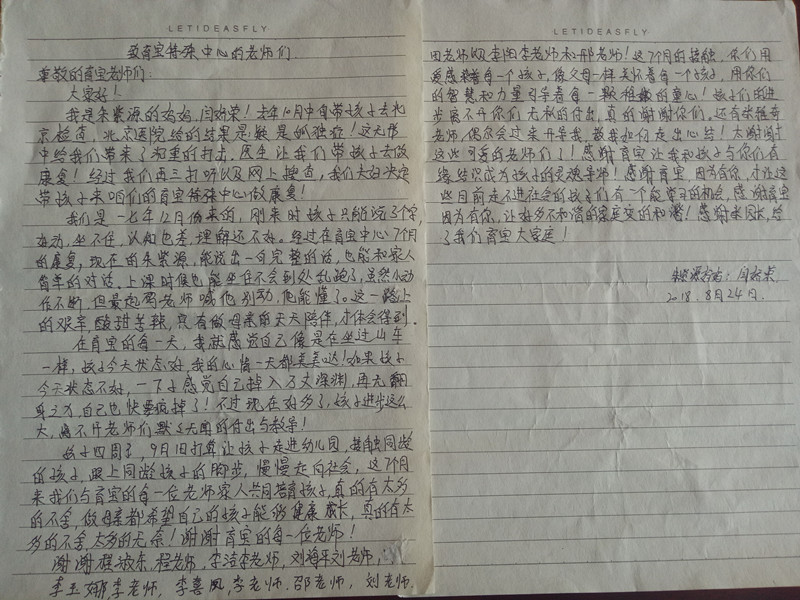 LETIDEASFLY
致育宝特殊中心的老师们
尊敬的育宝老师们:
大家好!
我是朱紫源的妈妈,闫娇荣!去年10月中旬带孩子去北
京检查,北京医院给的结果是疑是孤独症!这无形
中给我们带来了沉重的打击。医生让我们带孩子去做
康复!经过我们再三打听以及网上搜查,我们大好决定
带孩子来咱们的育宝特殊中心做康复!
我们是一七年12月份来的,刚来时孩子只能说2个字,
好动,坐不住,认知也差,理解还不好。经过在育宝中心7个月
的康复,现在的朱紫源,能说出一句完整的话,也能和家人
简单的对话。上课时候也能坐住不会到处乱跑了,虽然小动
作不断,但最起码老师喊他别动,他能懂了。这一路上
的艰辛,酸甜苦辣,只有做母亲的天天陪伴,才体会得到.
在育宝的每一天,我就感觉自己像是在坐过山车
一样,孩子今天状态好,我的心情一天都美美哒!如果孩子
今天状态不好,一下子感觉自己掉入万丈深渊,再无翻
身之力,自己也快要疯掉了!不过现在好多了,孩子进步这么
大,离不开老师们默默无闻的付出与教导!
孩子四周了,9月1日打算让孩子走进幼儿园,接触同龄
的孩子,跟上同龄孩子的脚步,慢慢走向社会,这7个月
来我们与育宝的每一位老师家人共同培育孩子,真的有太多
的不舍,做母亲都希望自己的孩子能够健康成长,真的有太
多的不舍,太多的无奈!谢谢育宝的每一位老师!
谢谢程淑东,程老师,李洁李老师,刘梅平刘老师,
李玉娜,李老师,李喜凤,李老师.邵老师,刘老师.
LETIDEASFLY
田老师以及李阳李老师和邢老师!这7个月的接触,你们用
爱感染着每一个孩子,像父母一样关怀着每一个孩子,用你们
的智慧和力量引导着每一颗稚嫩的童心!孩子们的进
步离不开你们无私的付出,真的谢谢你们。还有朱雅奇
老师,偶尔会过来开导我,教我如何走出心结!太谢谢
这些可爱的老师们了!感谢育宝让我和孩子与你们有
缘结识成为孩子的灵魂导师!感谢育宝,因为有你,才让这
些目前走不进社会的孩子们有一个能学习的机会,感谢育宝
因为有你,让好多不和谐的家庭变的和谐!感谢园长,给
了我们育宝大家庭!
朱紫源家长:闫娇荣
2018.8月24日.